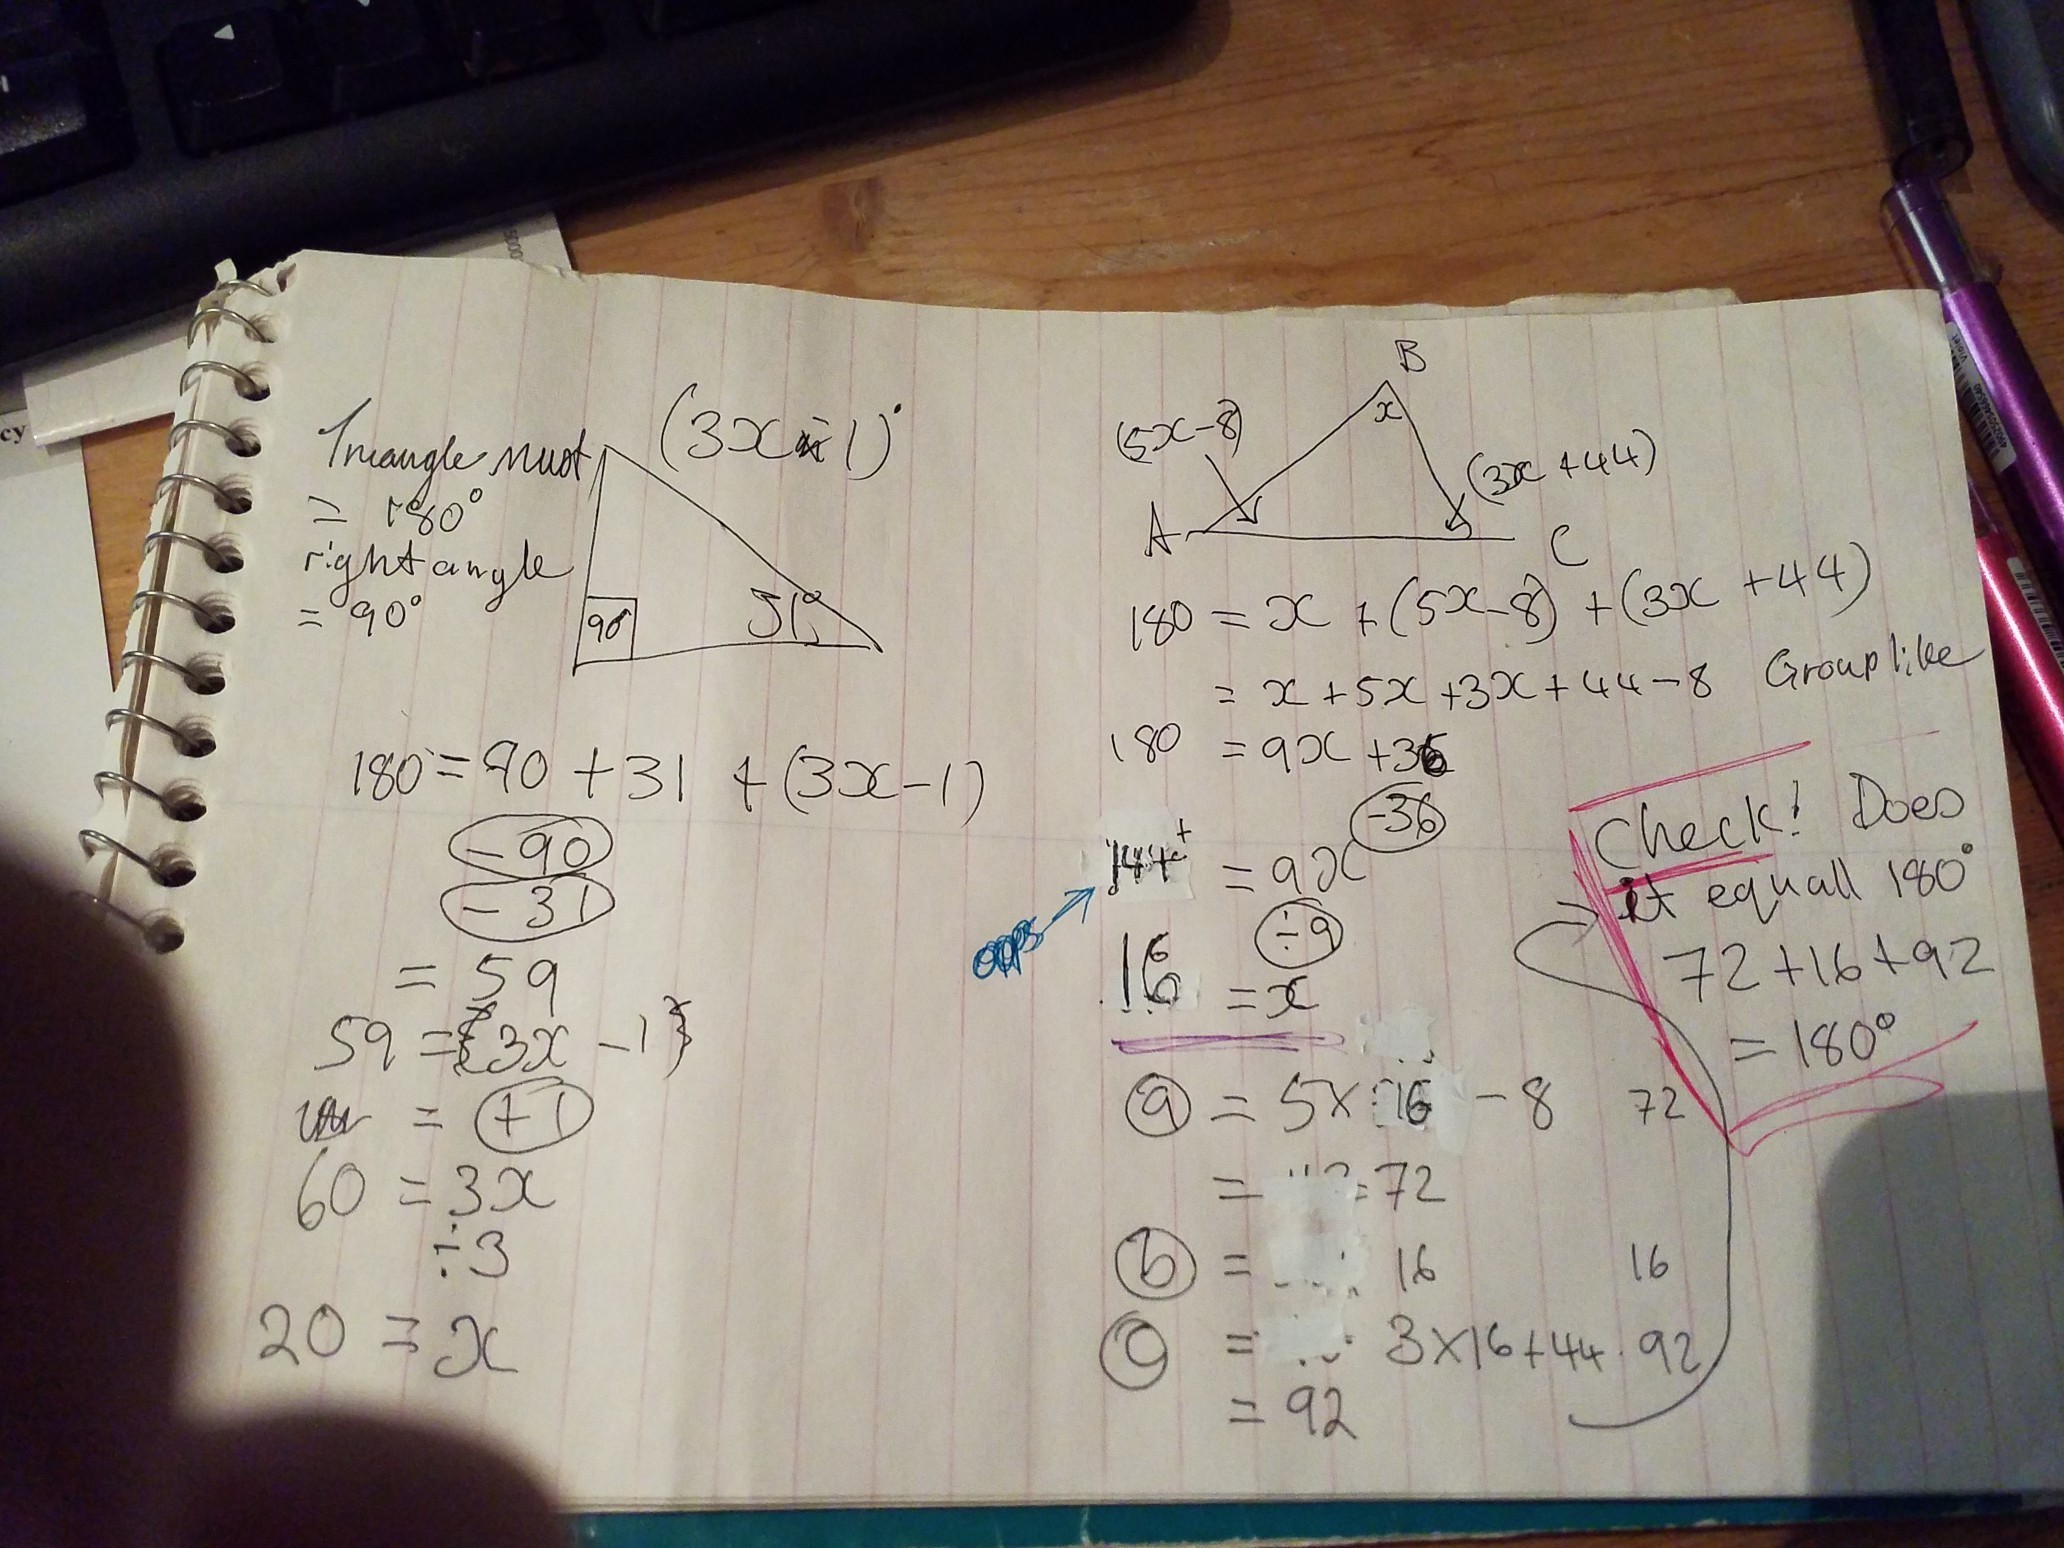 Triangle must
= 180°
right angle
= 90°
(3x-1)°
90°
31°
180 = 90 + 31 + (3x-1)
-90
-31
= 59
59 = {3x - 1}
= +1
60 = 3x
÷3
20 = x
B
x
(5x-8)
(3x + 44)
A
C
180 = x + (5x-8) + (3x + 44)
= x + 5x + 3x + 44 - 8 Group like
180 = 9x + 36
-36
144 = 9x
oops
÷9
16 = x
a = 5x 16 - 8 72
= 72
b = 16 16
c = 3x16+44 92
= 92
Check! Does
it equall 180°
72+16+92
= 180°
cy
violet